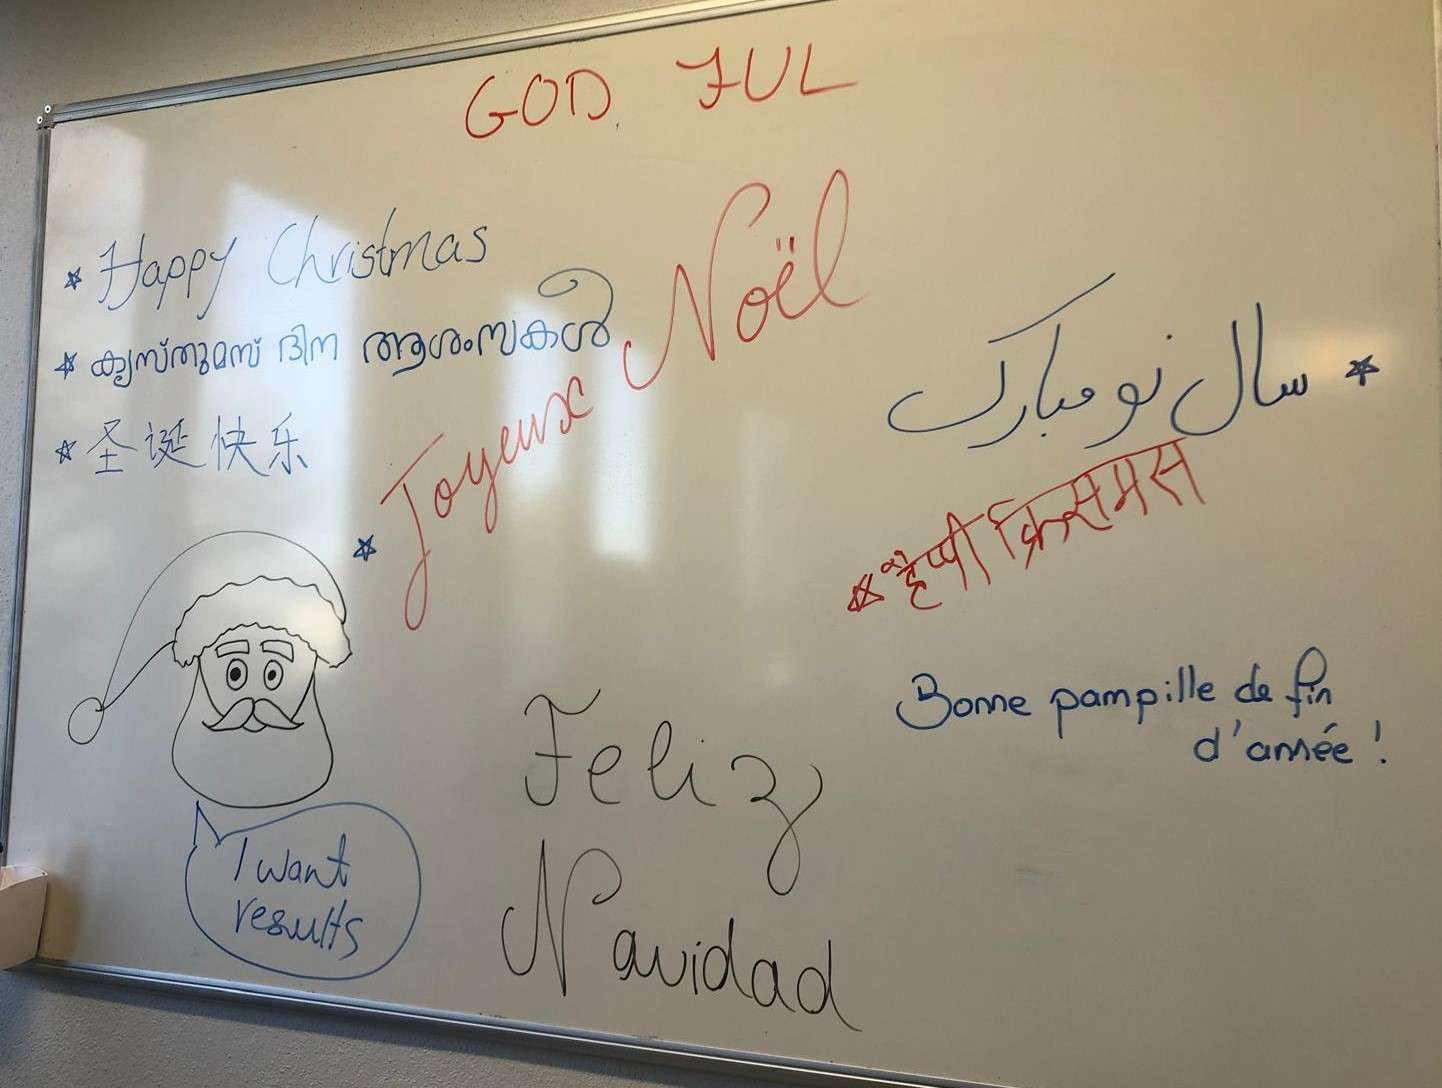 GOD JUL
Happy Christmas
ക്രിസ്തുമസ് ദിന ആശംസകൾ
圣诞快乐
Joyeux Noël
سال نو مبارک
हैप्पी क्रिसमस
Bonne pampille de fin
d'année !
Feliz
Navidad
I want
results